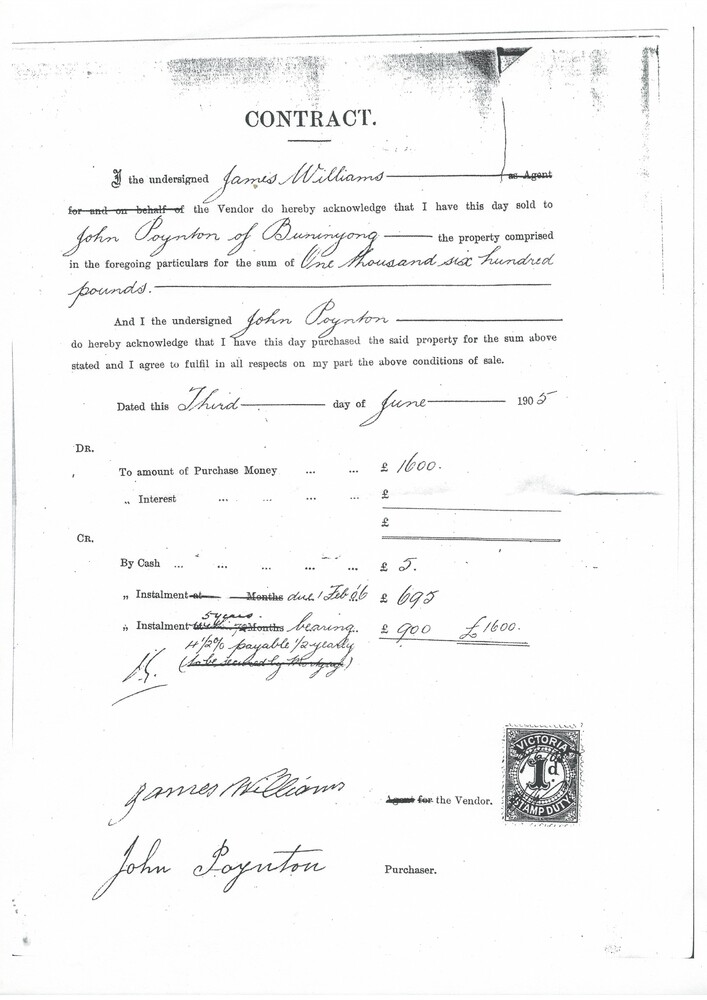 CONTRACT.
I the undersigned James Williams as Agent
for and on behalf of the Vendor do hereby acknowledge that I have this day sold to
John Poynton of Buninyong the property comprised
in the foregoing particulars for the sum of One thousand six hundred
pounds.
And I the undersigned John Poynton
do hereby acknowledge that I have this day purchased the said property for the sum above
stated and I agree to fulfil in all respects on my part the above conditions of sale.
Dated this Third day of June 1905
DR.
To amount of Purchase Money ... ... £ 1600.
„ Interest ... ... ... ... £
£
CR.
By Cash ... ... ... ... ... £ 5.
„ Instalment at Months due 1 Feb 06 £ 695
5 years.
„ Instalment Months bearing £ 900 £1600.
4 1/2% payable 1/2 yearly
(to be secured by Mortgage)
James Williams Agent for the Vendor.
VICTORIA
1d.
STAMP DUTY
John Poynton Purchaser.